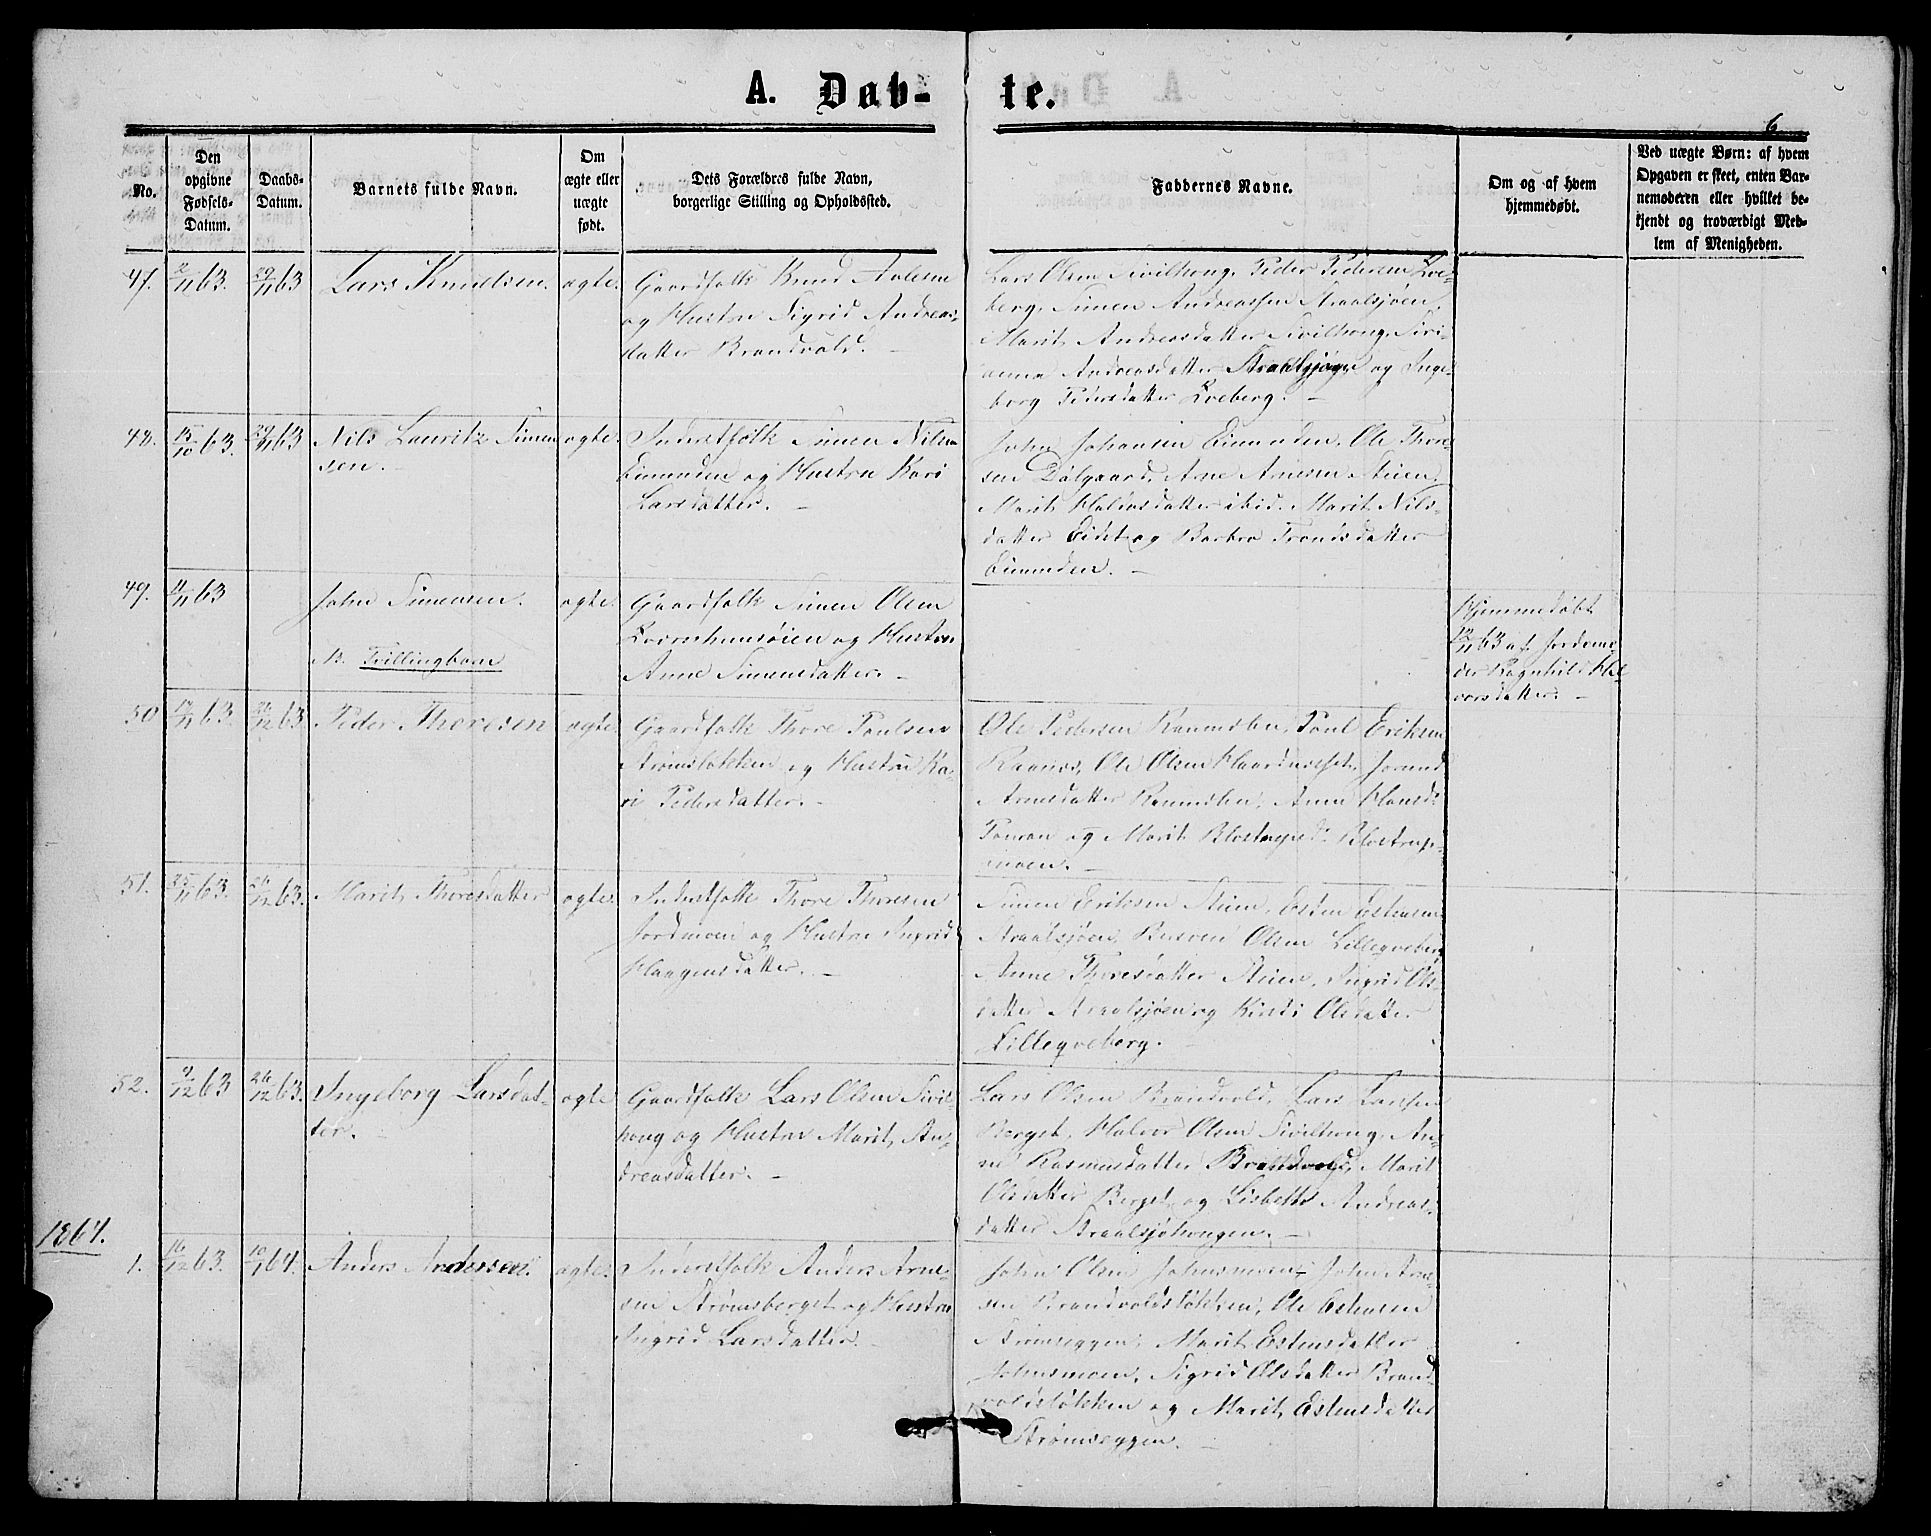 A. Døb-
te.
6
No.
Den
opgivne
Fødsels-
Datum.
Daabs-
Datum.
Barnets fulde Navn.
Om
ægte eller
uægte
født.
Dets Forældres fulde Navn,
borgerlige Stilling og Opholdssted.
Faddernes Navne.
Om og af hvem
hjemmedøbt.
Ved uægte Børn: af hvem
Opgaven er skeet, enten Bar-
nemoderen eller hvilket be-
kjendt og troværdigt Med-
lem af Menigheden.
47.
2/11 63.
29/11 63
Lars Knudsen.
ægte.
Gaardfolk Knud
og Hustru Sigrid Andreas-
datter Brandvold. -
Lars Olsen Sivilhong, Peder Pedersen Qve-
berg, Simen Andreassen Straalsjøen,
Marit Andreasdatter Sivilhong, Siri-
anna Andreasdatter Straalsjøen og Inge-
borg Pedersdatter Qveberg. -
48.
15/10 63.
29/11 63
Nils Lauritz Simen-
sen. -
ægte.
Inderstfolk Simen Nilsen
Eimunden og Hustru Kari
Larsdatter. -
John Johansen Eimunden, Ole Thore-
sen Dølgaard, Arne Arnesen Steien,
Marit Halvorsdatter ibid. Marit Nils-
datter Eidet og Barbro Trondsdatter
Eimunden. -
49.
11/11 63
John Simensen.
NB. Tvillingbarn
ægte.
Gaardfolk Simen Olsen
og Hustru
Anne Simensdatter. -
Hjemmedøbt
12/11 63 af Jordemo-
der Ragnhild Hal-
vorsdatter. -
50
63.
26/12 63.
Peder Thoresen
ægte
Gaardfolk Thore Paulsen
Strømsløkken og Hustru Ka-
ri Pedersdatter. -
Ole Pedersen Paul Eriksen
Ole Olsen Jorund
Arnesdatter Anne Hansd.
og Marit
moen. -
51.
25/11 63.
26/12 63.
Marit Thoresdatter
ægte.
Inderstfolk Thore Thoresen
Jordmoen og Hustru Ingrid
Haagensdatter. -
Simen Eriksen Steien, Esten Estensen
Straalsjøen, Olsen Lilleqveberg
Anne Thoresdatter Steien, Ingrid Ols-
datter Straalsjøen og Kirsti Olsdatter
Lilleqveberg.
52.
9/12 63
26/12 63.
Ingeborg Larsdat-
ter.
ægte
Gaardfolk Lars Olsen Sivil-
hong og Hustru Marit An-
dreasdatter. -
Lars Olsen Brandvold, Lars Larsen
Berget, Halvor Olsen Sivilhong, An-
ne Rasmusdatter Brandvold, Marit
Olsdatter Berget og Lisbeth Andreas-
datter Straalsjøhongen. -
1864.
1.
16/12 63.
10/1 64.
Anders Andersen.
ægte.
Inderstfolk Anders Arne-
sen Strømsberget og Hustru
Ingrid Larsdatter. -
John Olsen Johnsmoen, John Arne-
sen Brandvoldsløkken, Ole Estensen
Strømseggen, Marit Estensdatter
Johnsmoen, Sigrid Olsdatter Brand-
voldsløkken og Marit Estensdatter
Strømseggen. -